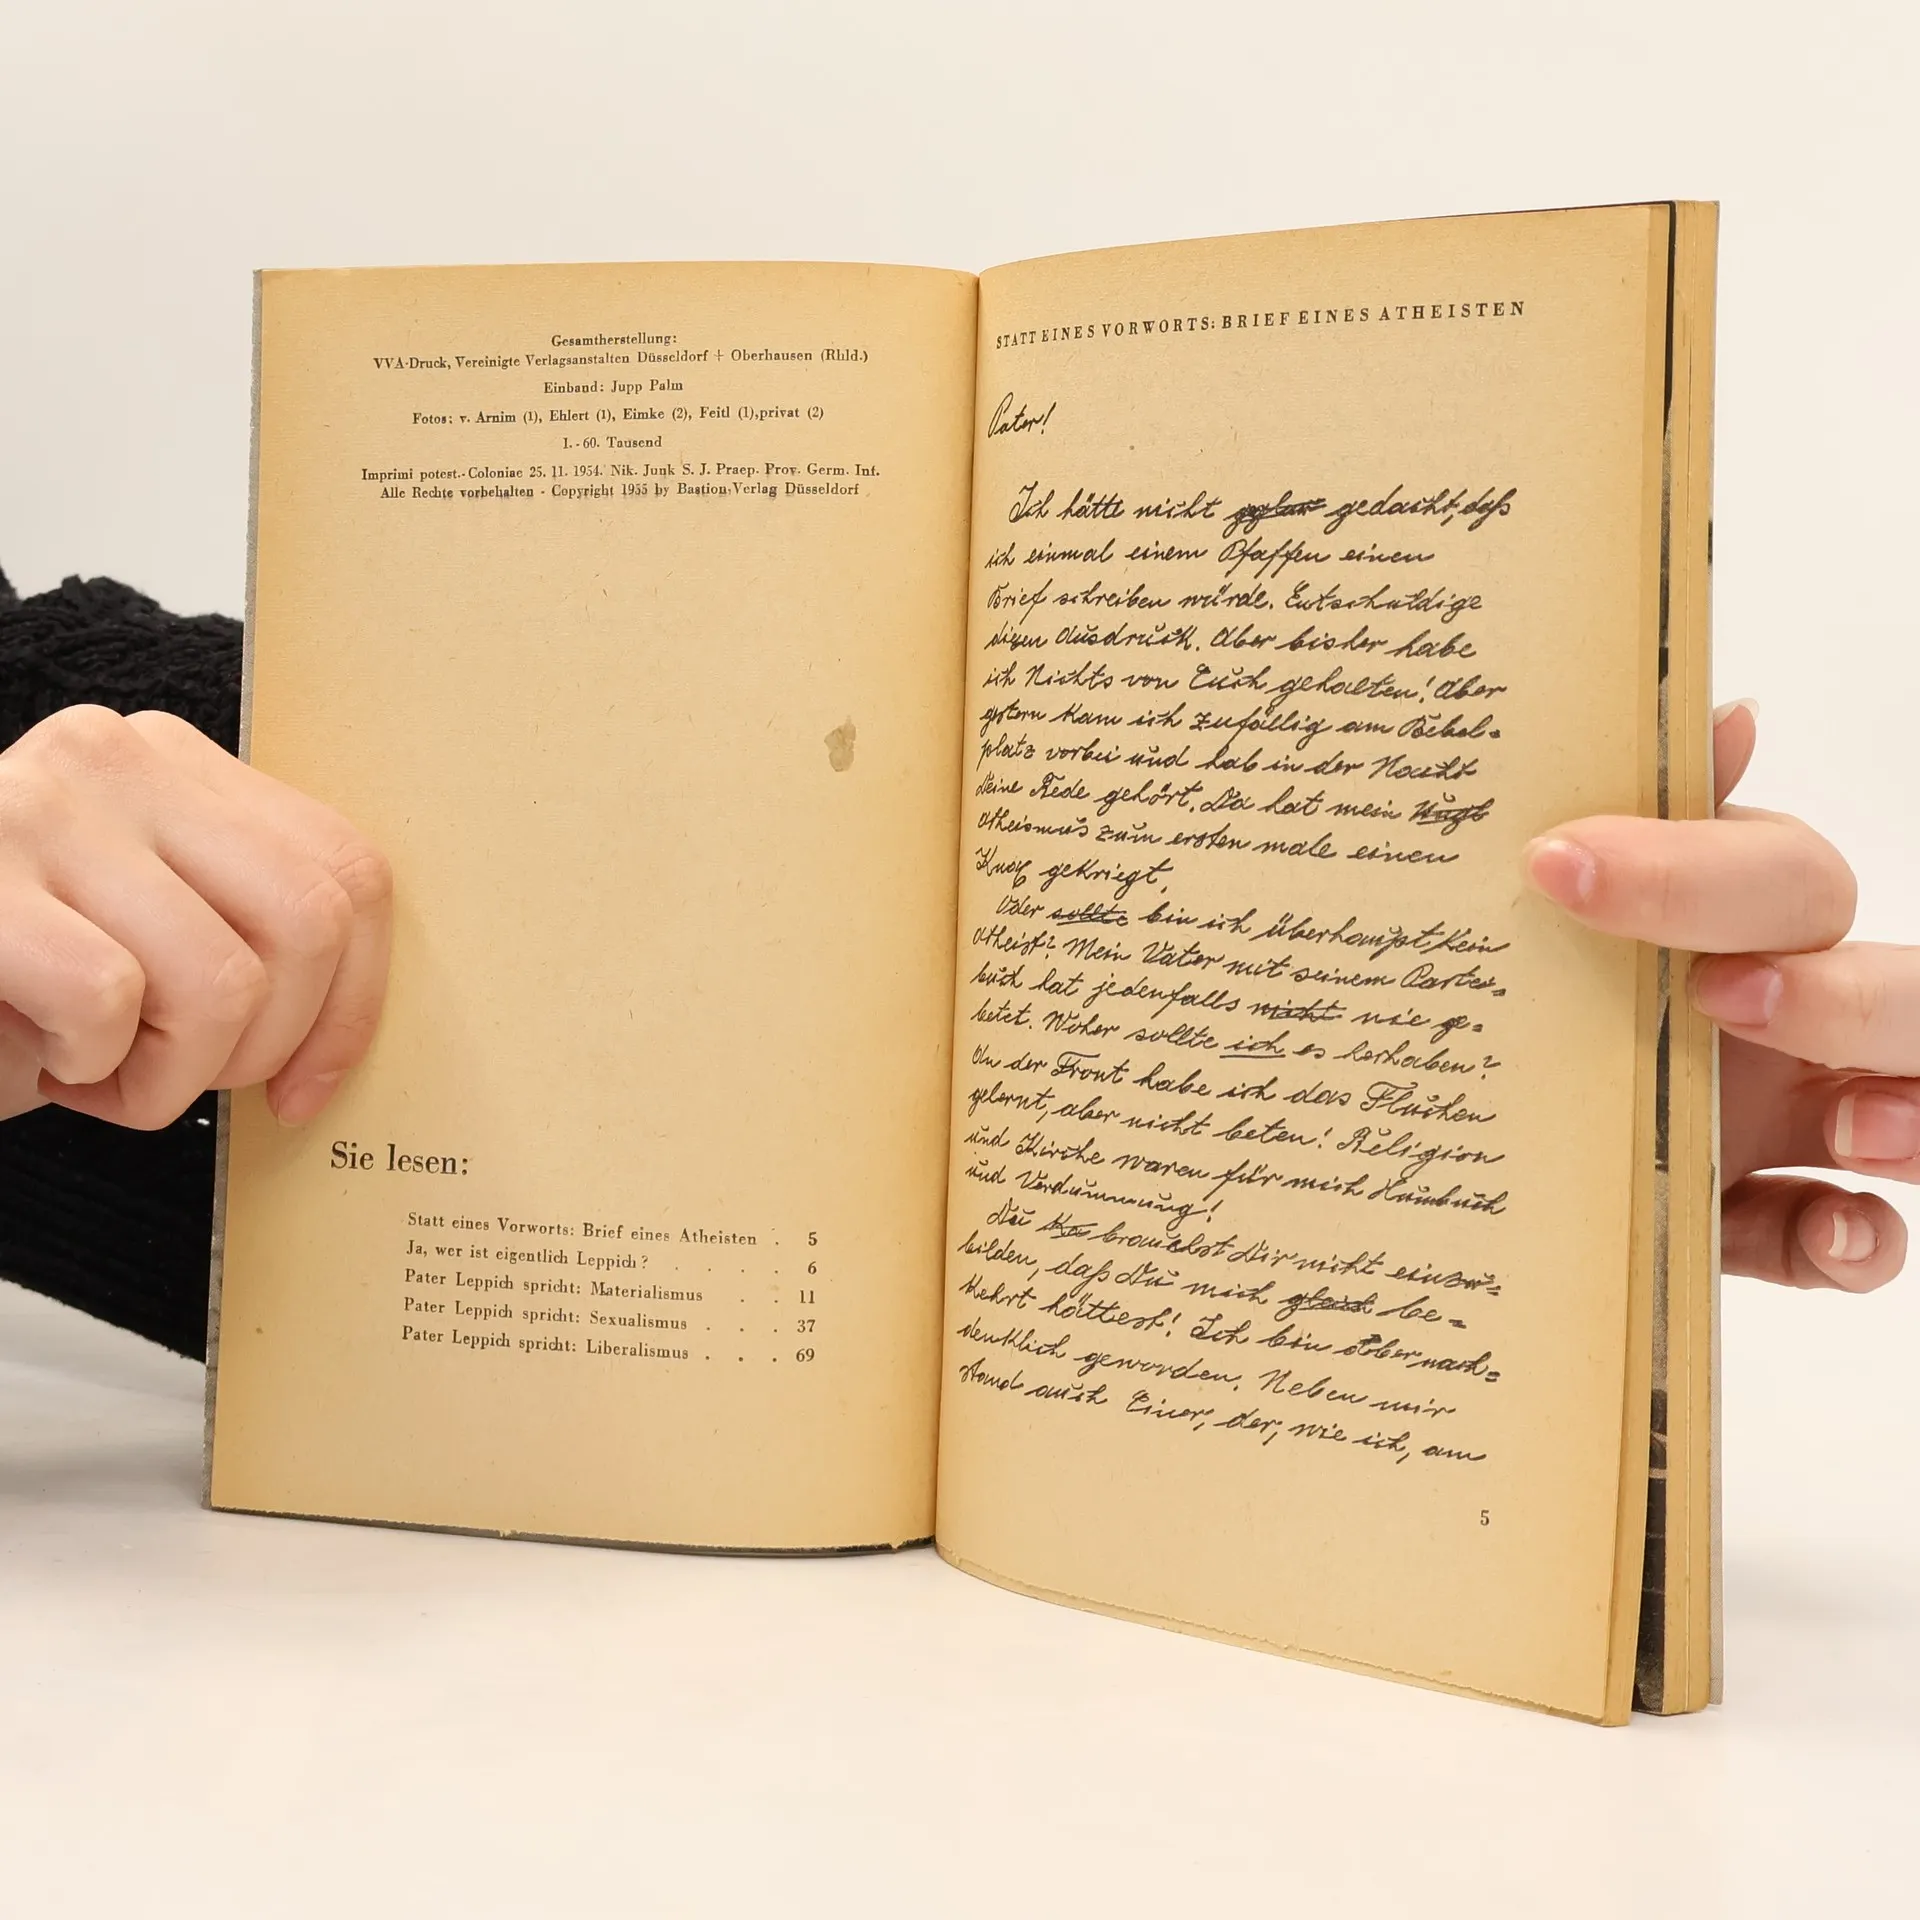 Gesamtherstellung:
VVA-Druck, Vereinigte Verlagsanstalten Düsseldorf + Oberhausen (Rhld.)
Einband: Jupp Palm
Fotos: v. Arnim (1), Ehlert (1), Eimke (2), Feitl (1),privat (2)
1.-60. Tausend
Imprimi potest.-Coloniae 25. 11. 1954. Nik. Junk S. J. Praep. Prov. Germ. Inf.
Alle Rechte vorbehalten - Copyright 1955 by Bastion-Verlag Düsseldorf
Sie lesen:
Statt eines Vorworts: Brief eines Atheisten . 5
Ja, wer ist eigentlich Leppich? . . . . 6
Pater Leppich spricht: Materialismus . . 11
Pater Leppich spricht: Sexualismus . . . 37
Pater Leppich spricht: Liberalismus . . . 69
STATT EINES VORWORTS: BRIEF EINES ATHEISTEN
Pater!
Ich hätte nicht gedacht, daß
ich einmal einem Pfaffen einen
Brief schreiben würde. Entschuldige
diesen Ausdruck. Aber bisher habe
ich Nichts von Euch gehalten! Aber
gestern kam ich zufällig am Bebel=
platz vorbei und hab in der Nacht
Deine Rede gehört. Da hat mein
Atheismus zum ersten male einen
Knax gekriegt.
Oder sollte bin ich überhaupt kein
Atheist? Mein Vater mit seinem Partei=
buch hat jedenfalls nicht nie ge=
betet. Woher sollte ich es herhaben?
An der Front habe ich das Fluchen
gelernt, aber nicht beten! Religion
und Kirche waren für mich Humbuch
und Verdummung!
Du Ka brauchst Dir nicht einzu=
bilden, daß Du mich gleich be=
kehrt hättest! Ich bin aber nach=
denklich geworden. Neben mir
stand auch Einer, der, wie ich, am
5